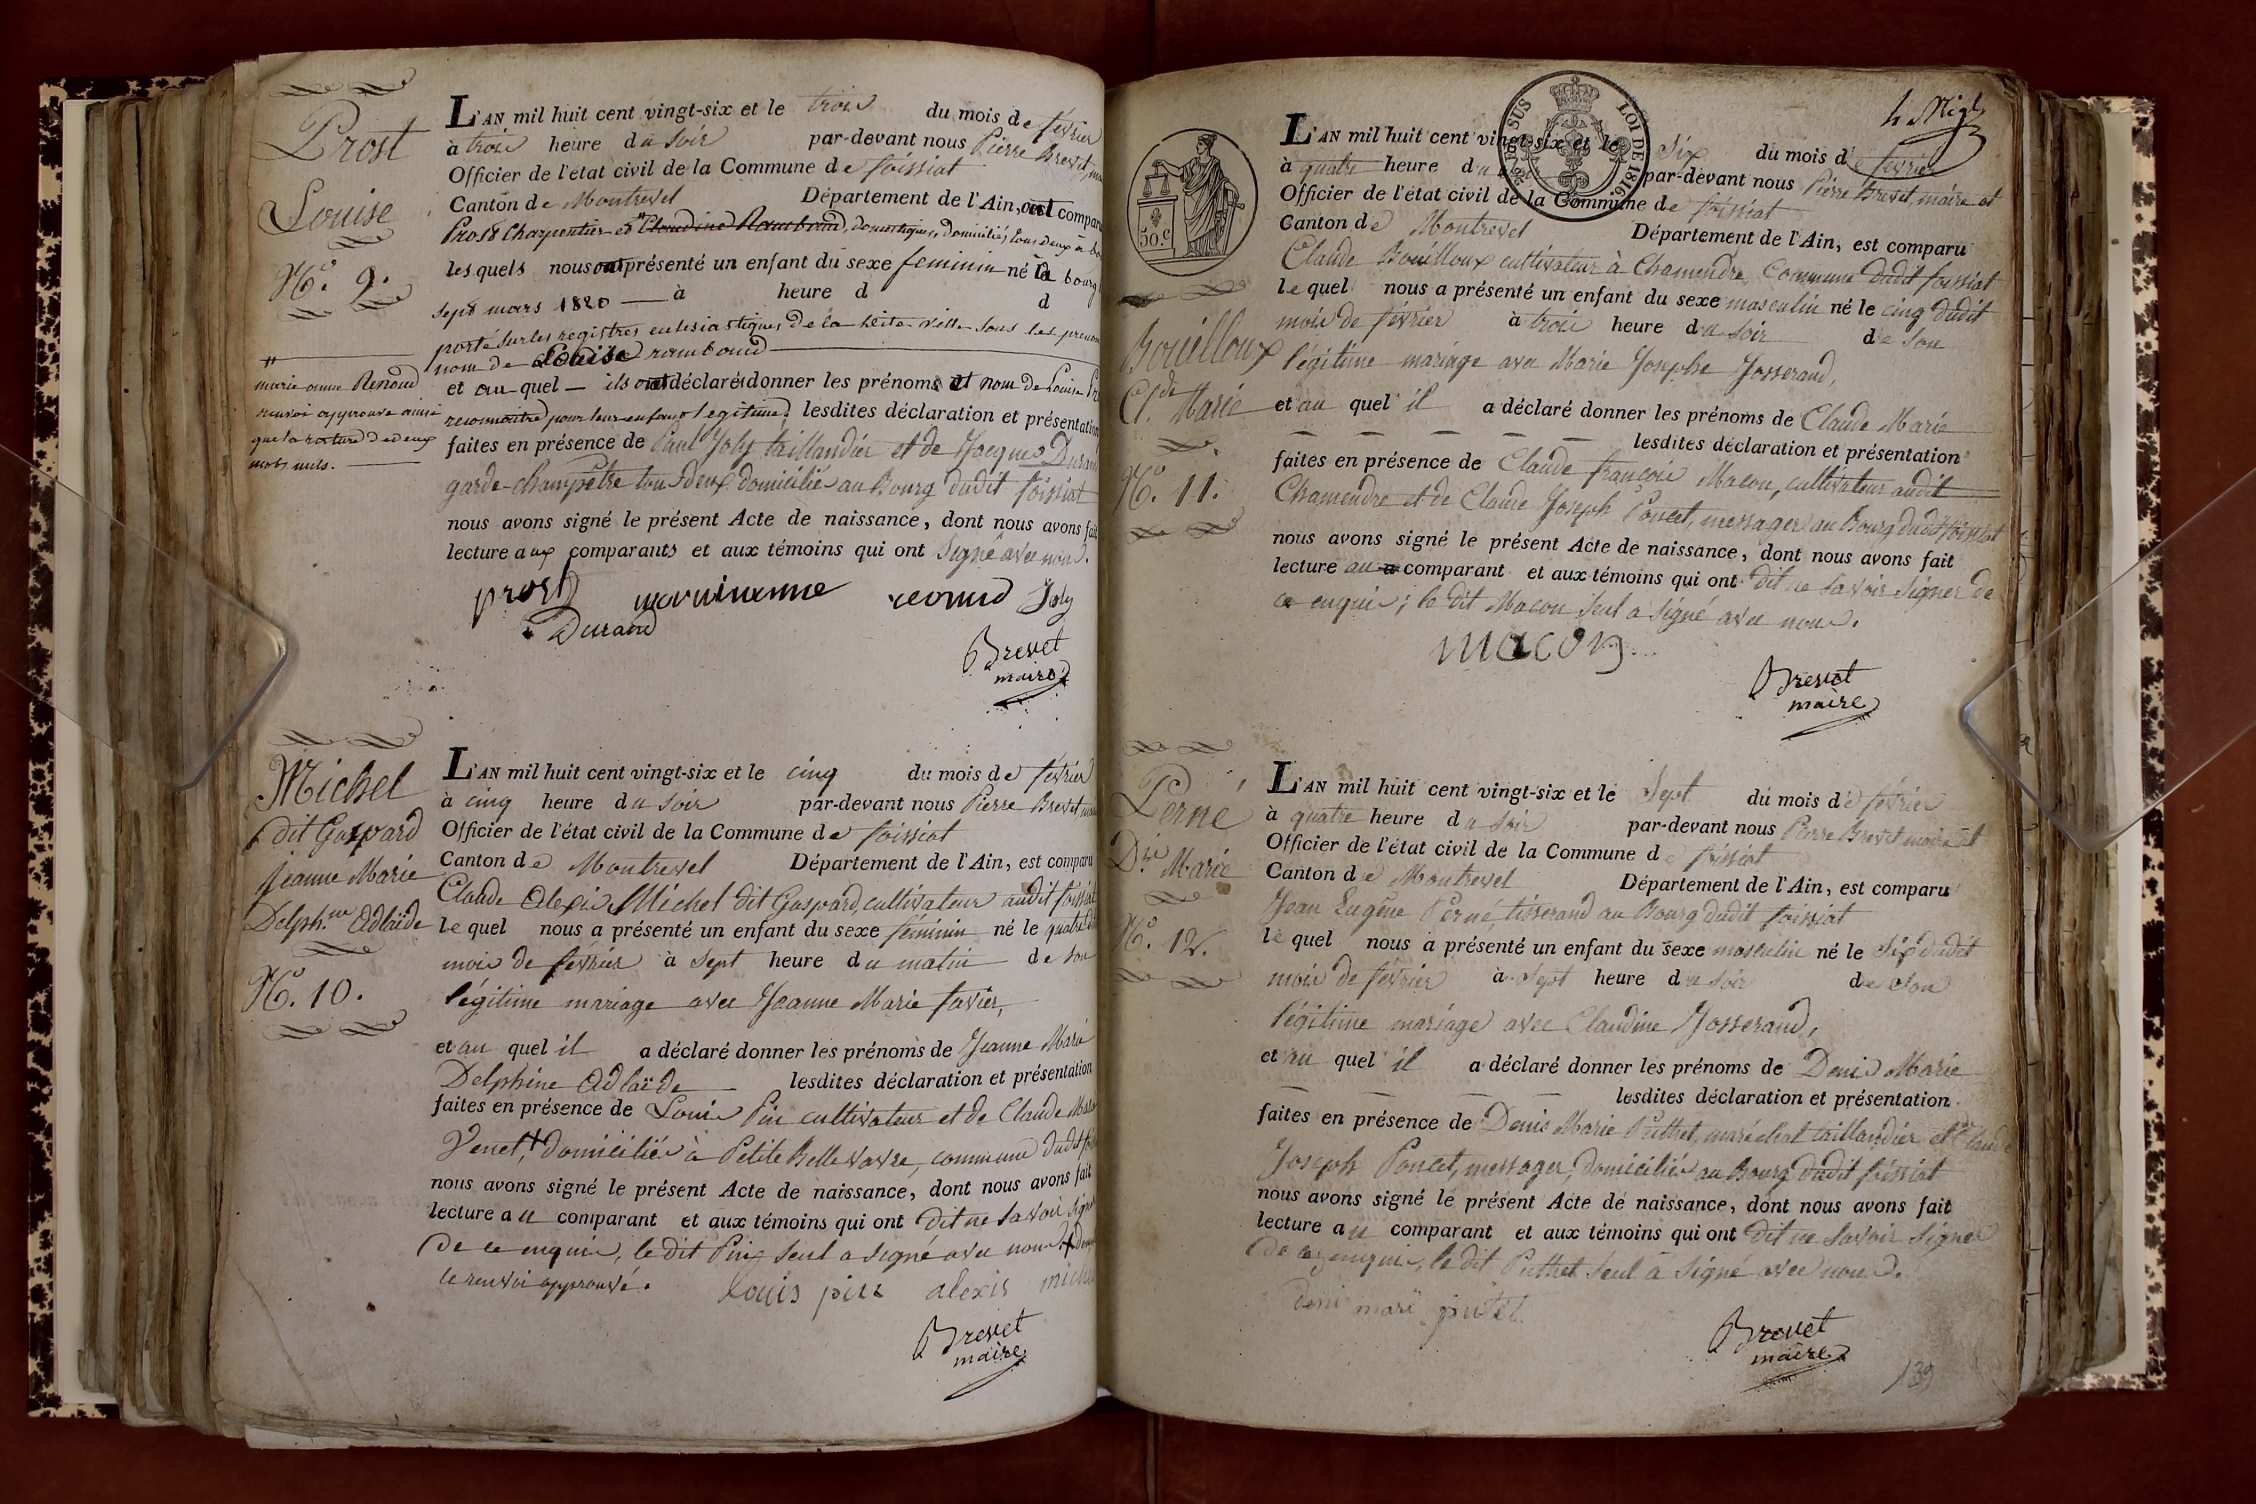 Prost
Louise
N.o 9.
L'AN mil huit cent vingt-six et le trois du mois de février
à trois heure du soir par-devant nous Pierre Brevet,
Officier de l'état civil de la Commune de foissiat
Canton de Montrevel Département de l'Ain, ont compar
Prost Charpentier et Claudine Rambaud, domestiques, domiciliés tous deux à
lesquels nous ont présenté un enfant du sexe feminin né à bourg
sept mars 1820 — à heure d d
porté sur les registres eclesiastiques de la dite ville sous les prenom
nom de Louise rambaud
et au quel — ils ont déclarés donner les prénoms et nom de Louise
reconnoitre pour leur enfant legitime, lesdites déclaration et présentation
faites en présence de Paul Joly taillandier et de Jacques Durand
garde-champêtre tous deux domiciliés au Bourg dudit foissiat
nous avons signé le présent Acte de naissance, dont nous avons fait
lecture aux comparants et aux témoins qui ont signé avec nous.
marie anne Renoud
renvoi approuvé ainsi
que la rature de deux
mots nuls.
prost marie anne renoud Joly
Durand
Brevet
maire
Michel
dit Gaspard
Jeanne Marie
Delph.ne Adlaïde
N.o 10.
L'AN mil huit cent vingt-six et le cinq du mois de février
à cinq heure du soir par-devant nous Pierre Brevet
Officier de l'état civil de la Commune de foissiat
Canton de Montrevel Département de l'Ain, est comparu
Claude Alexis Michel dit Gaspard, cultivateur audit foissiat
lequel nous a présenté un enfant du sexe féminin né le quatre
mois de février à sept heure du matin de son
légitime mariage avec Jeanne Marie favier,
et au quel il a déclaré donner les prénoms de Jeanne Marie
Delphine Adlaïde — lesdites déclaration et présentation
faites en présence de Louis Pin cultivateur et de Claude
Venet, domiciliés à Petite Bellevavre, commune dudit
nous avons signé le présent Acte de naissance, dont nous avons fait
lecture au comparant et aux témoins qui ont dit ne savoir signer
de ce enquis, le dit Pin seul a signé avec nous
le renvoi approuvé.
louis pin alexis michel
Brevet
maire
LOI DE 1816.
50.c
Bouilloux
Cl.de Marie
N.o 11.
L'AN mil huit cent vingt-six et le six du mois de février
à quatre heure du par-devant nous Pierre Brevet, maire et
Officier de l'état civil de la Commune de foissiat
Canton de Montrevel Département de l'Ain, est comparu
Claude Bouilloux cultivateur à Chamendre, Commune dudit foissiat
lequel nous a présenté un enfant du sexe masculin né le cinq dudit
mois de février à trois heure du soir de son
légitime mariage avec Marie Josephe Josserand,
et au quel il a déclaré donner les prénoms de Claude Marie
lesdites déclaration et présentation
faites en présence de Claude françois Macon, cultivateur audit
Chamendre et de Claude Joseph Poncet, messager au Bourg dudit foissiat
nous avons signé le présent Acte de naissance, dont nous avons fait
lecture au comparant et aux témoins qui ont dit ne savoir signer de
ce enquis; le dit Macon seul a signé avec nous.
macon
Brevet
maire
Perné
D.is Marie
N.o 12.
L'AN mil huit cent vingt-six et le sept du mois de février
à quatre heure du soir par-devant nous Pierre Brevet maire et
Officier de l'état civil de la Commune de foissiat
Canton de Montrevel Département de l'Ain, est comparu
Jean Eugêne Perné, tisserand au Bourg dudit foissiat
lequel nous a présenté un enfant du sexe masculin né le six dudit
mois de février à sept heure du soir de son
légitime mariage avec Claudine Josserand,
et au quel il a déclaré donner les prénoms de Denis Marie
lesdites déclaration et présentation
faites en présence de Denis Marie Puthet, maréchal taillandier et Claude
Joseph Poncet, messager, domiciliés au Bourg dudit foissiat
nous avons signé le présent Acte de naissance, dont nous avons fait
lecture au comparant et aux témoins qui ont dit ne savoir signer
de ce enquis, le dit Puthet seul a signé avec nous.
deni mari putet
Brevet
maire
139